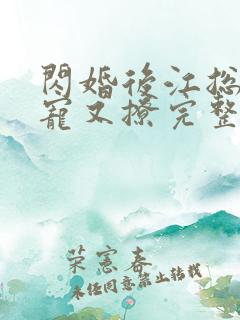 閃婚後江总
寵又撩完整
荣宪春
未经同意禁止转载